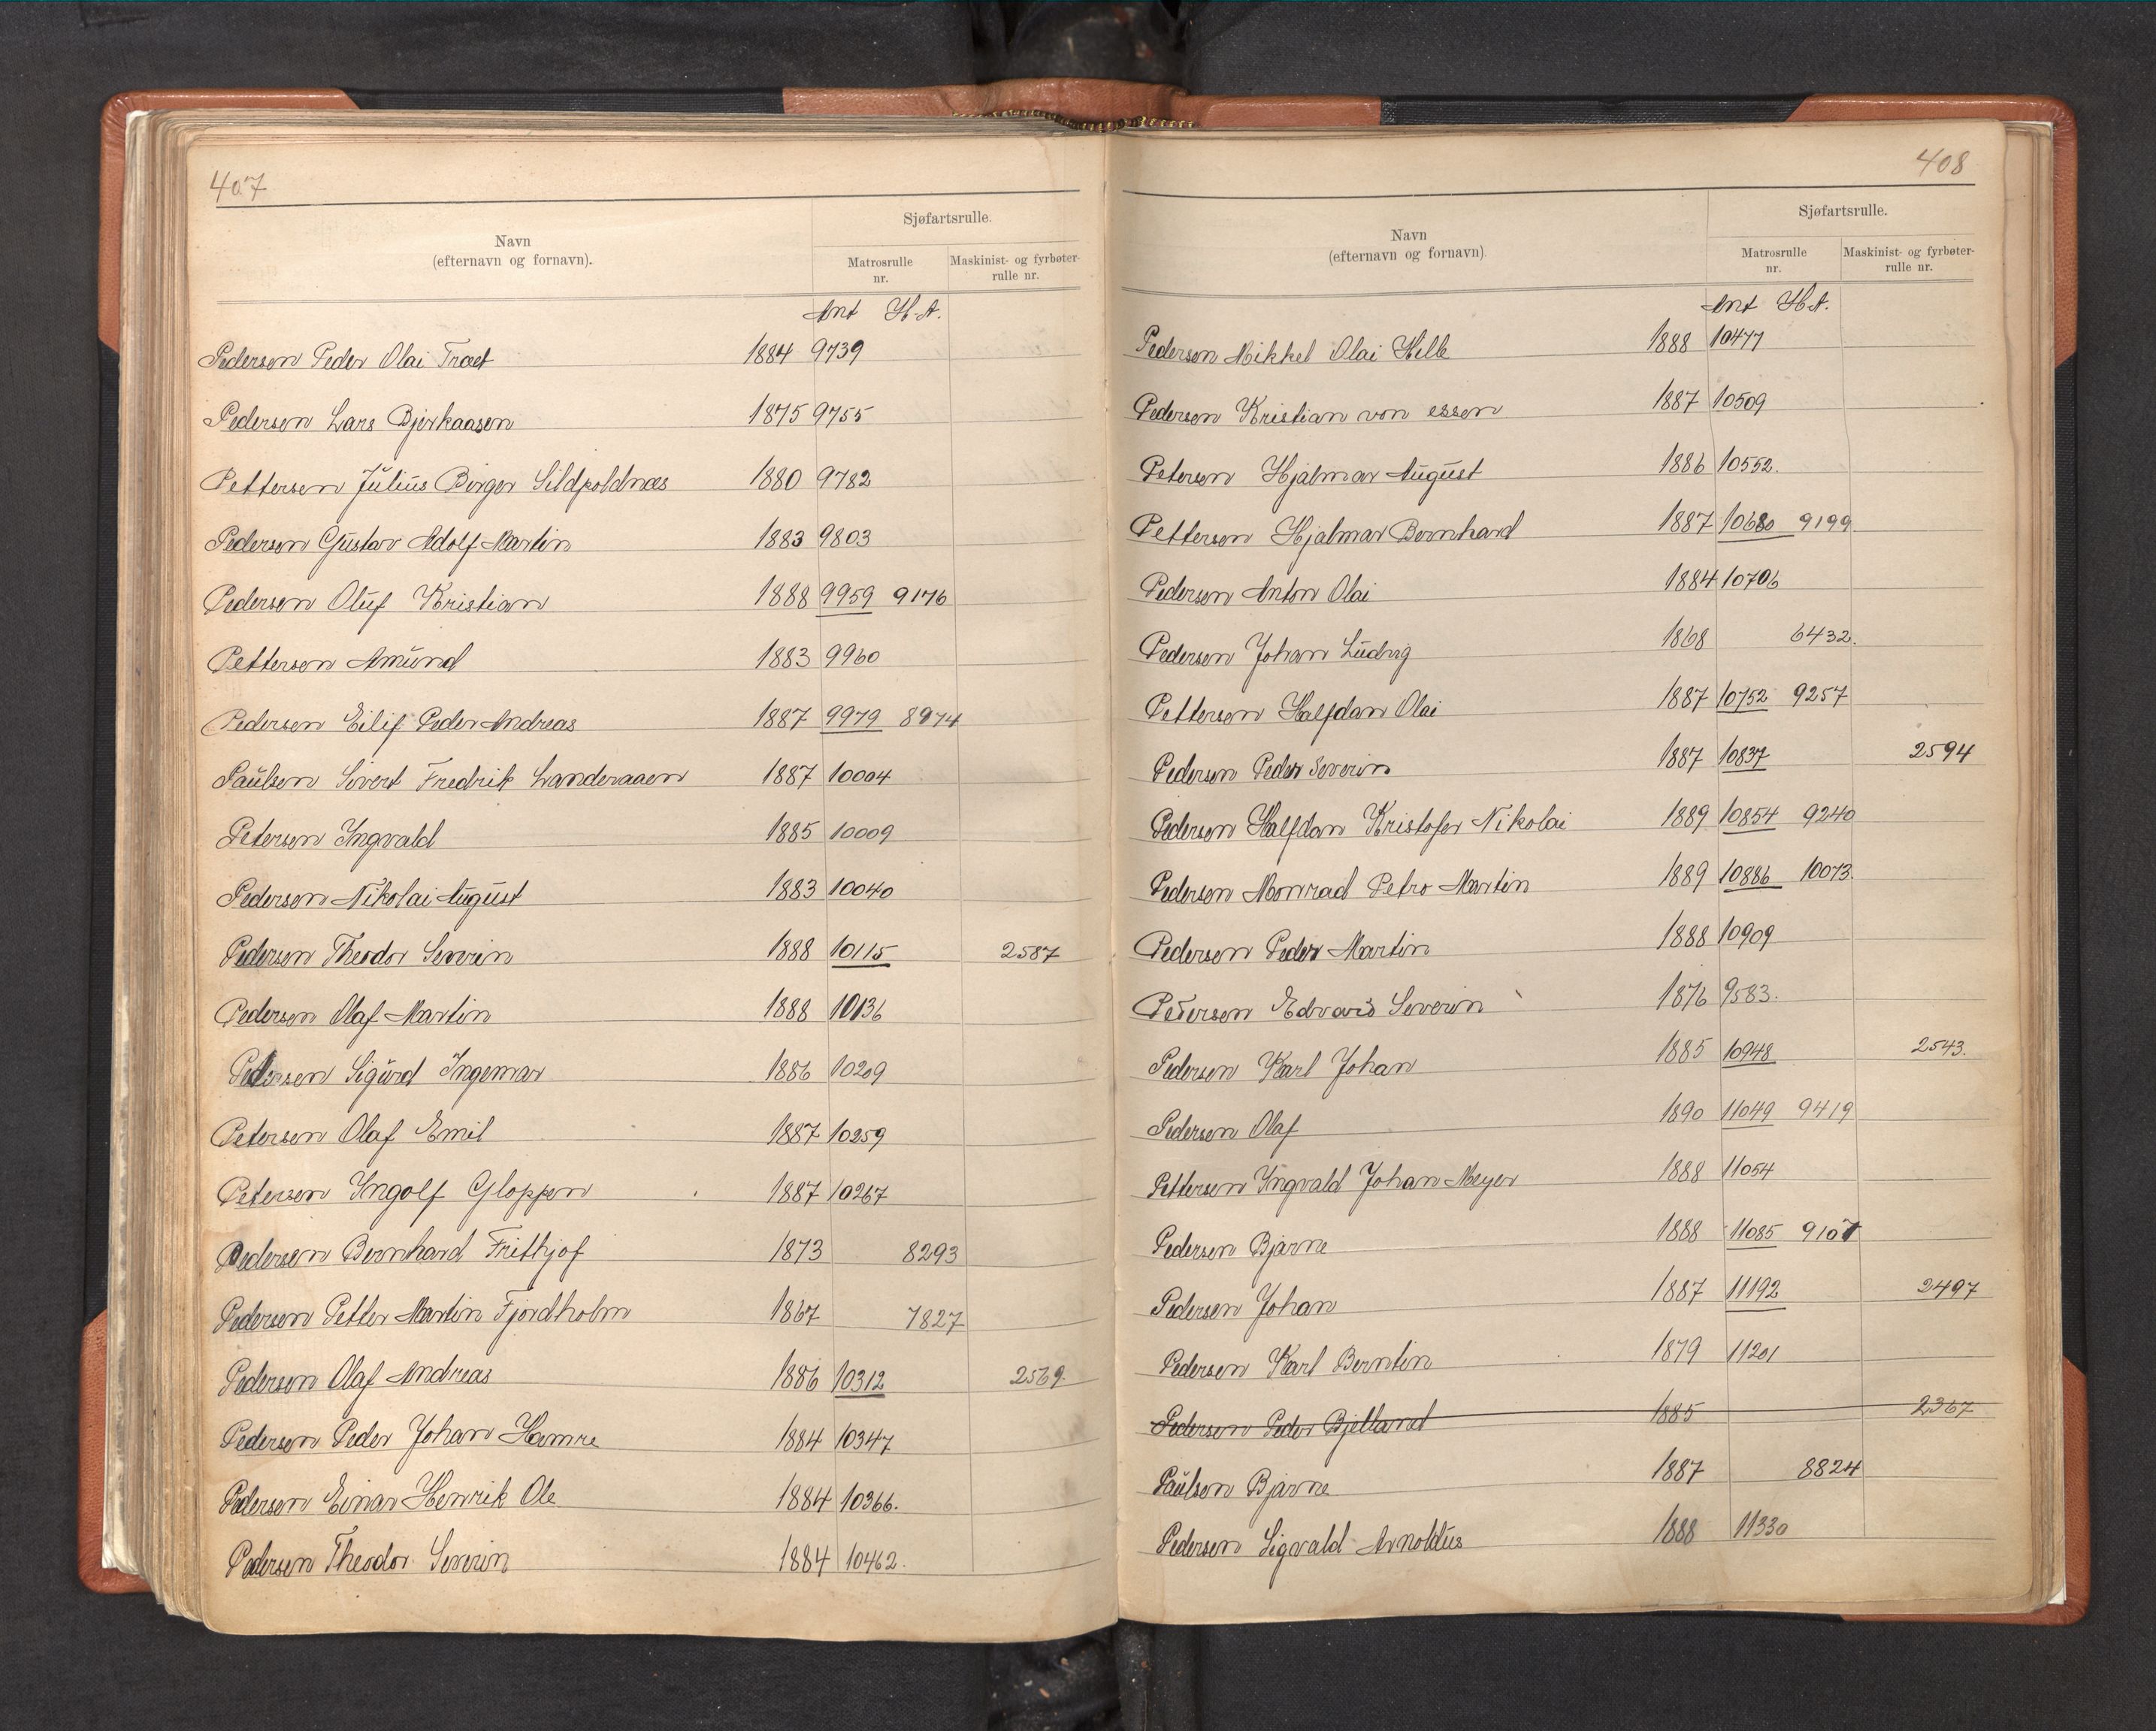 407
Sjøfartsrulle.
Navn
(efternavn og fornavn).
Matrosrulle
nr.
Maskinist- og fyrbøter-
rulle nr.
Ant H.A.
Pedersen Peder Olai Træt 1884 9739
Pedersen Lars Bjerkaasen 1875 9755
Pettersen Julius Birger Sildpoldnæs 1880 9782
Pedersen Gustav Adolf Martin 1883 9803
Pedersen Oluf Kristian 1888 9959 9176
Pettersen Amund 1883 9960
Pedersen Eilif Peder Andreas 1887 9979 8974
Paulsen Sivert Fredrik Landeraaen 1887 10004
Petersen Ingvald 1885 10009
Pedersen Nikolai August 1883 10040
Pedersen Theodor Severin 1888 10115 2587
Pedersen Olaf Martin 1888 10136
Pedersen Sigurd Ingemar 1886 10209
Petersen Olaf Emil 1887 10259
Petersen Ingolf Gloppen 1887 10267
Pedersen Bernhard Frithjof 1873 8293
Pedersen Petter Martin Fjordholm 1867 7827
Pedersen Olaf Andreas 1886 10312 2569.
Pedersen Peder Johan Hamre 1884 10347
Pedersen Einar Henrik Ole 1884 10366.
Pedersen Theodor Severin 1884 10462.
408
Sjøfartsrulle.
Navn
(efternavn og fornavn).
Matrosrulle
nr.
Maskinist- og fyrbøter-
rulle nr.
Ant H.A.
Pedersen Mikkel Olai Hille 1888 10477
Pedersen Kristian von essen 1887 10509
Petersen Hjalmar August 1886 10552.
Pettersen Hjalmar Bernhard 1887 10680 9199
Pedersen Anton Olai 1884 10706
Pedersen Johan Ludvig 1868 6432.
Pettersen Halfdan Olai 1887 10752 9257
Pedersen Peder Severin 1887 10837 2594
Pedersen Halfdan Kristofer Nikolai 1889 10854 9240
Pedersen Monrad Petro Martin 1889 10886 10073.
Pedersen Peder Martin 1888 10909
Petersen Edvard Severin 1876 9583.
Pedersen Karl Johan 1885 10948 2543.
Pedersen Olaf 1890 11049 9419
Pettersen Ingvald Johan Meyer 1888 11054
Pedersen Bjarne 1888 11085 9107
Pedersen Johan 1887 11192 2497
Pedersen Karl Berntin 1879 11201
Pedersen Peder Bjelland 1885 2367
Paulsen Bjarne 1887 8824
Pedersen Sigvald Arnoldus 1888 11330